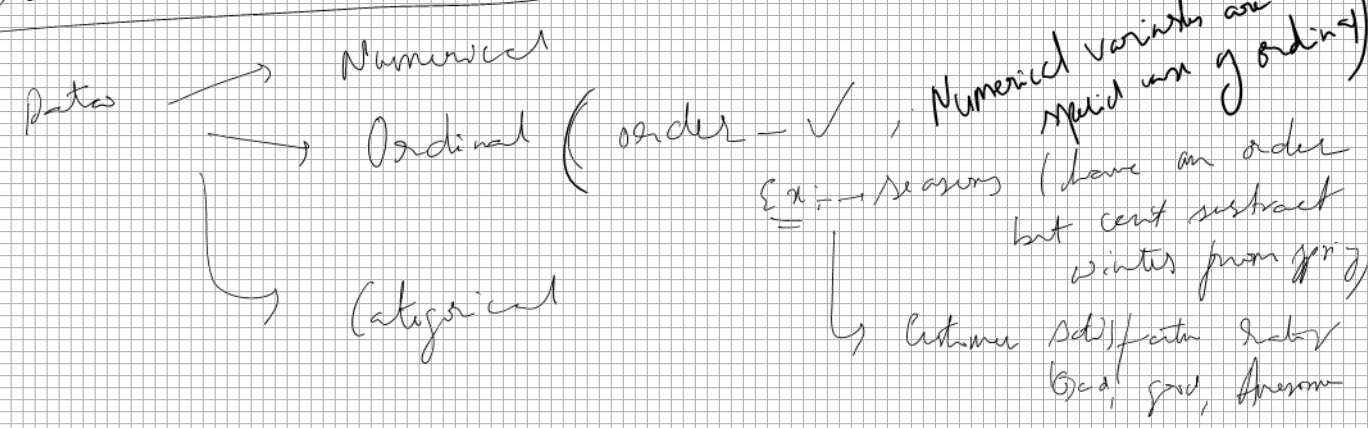 Data
Numerical
Ordinal ( order - ✓ , Numerical variables are
special case of ordinal)
Ex :- → seasons (have an order
but cent substract
winter from spring)
Categorical
Customer satisfaction rating
Bad, good, Awesome